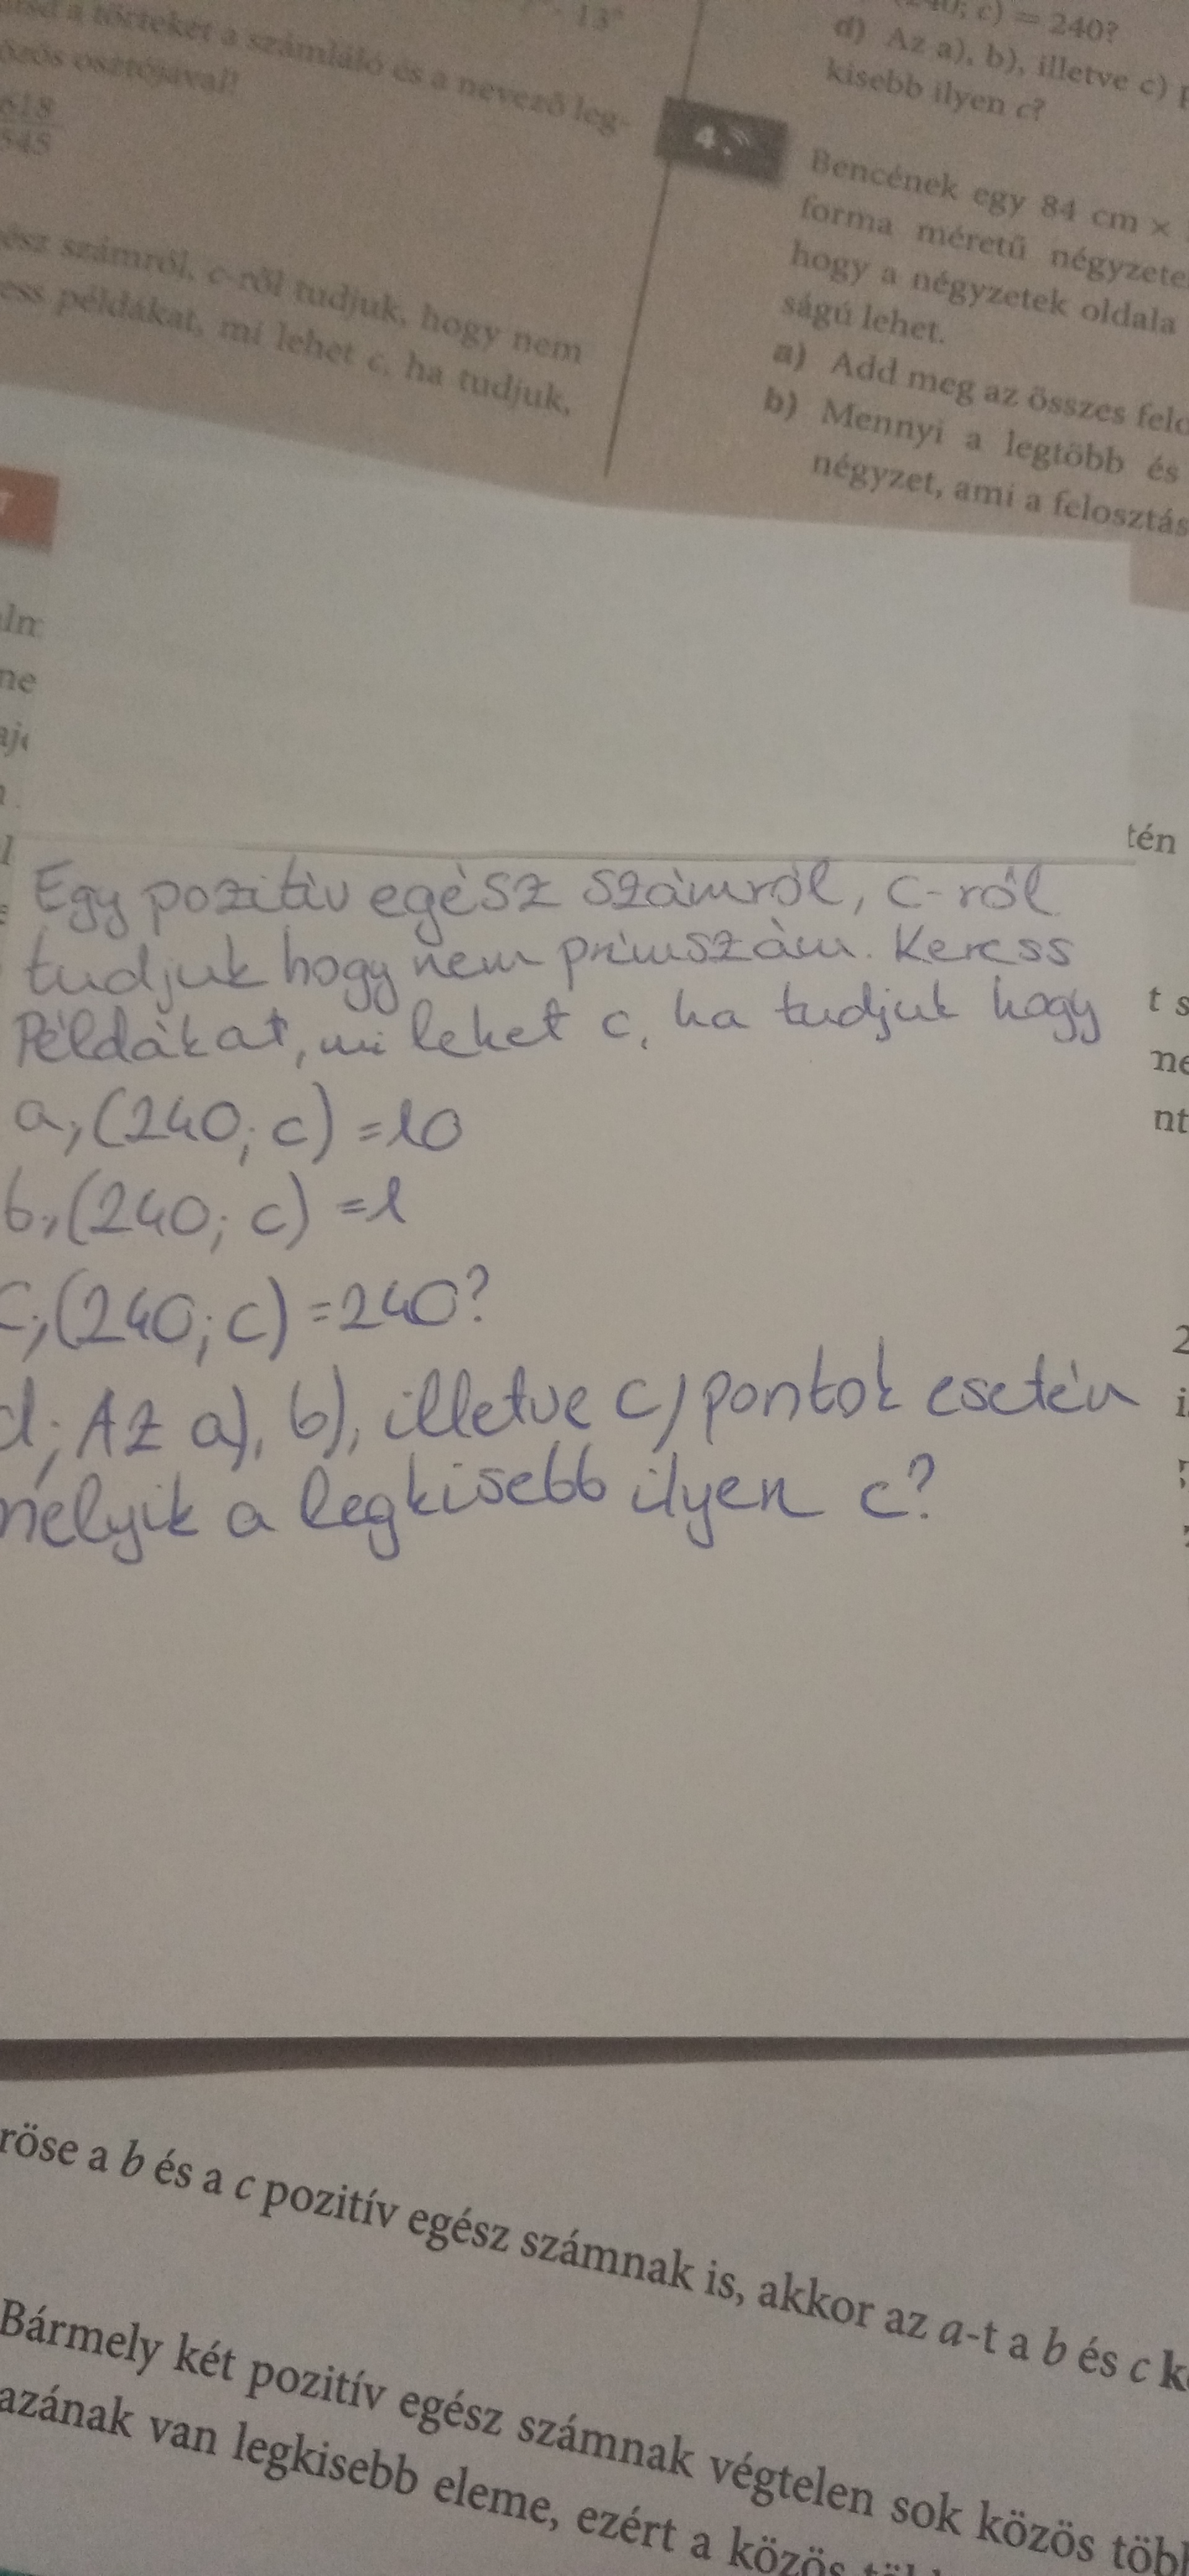 a törteket a számláló és a nevező leg-
közös osztójával!
618
545
13
ész számról, c-ről tudjuk, hogy nem
ess példákat, mi lehet c, ha tudjuk,
c) = 240?
d) Az a), b), illetve c)
kisebb ilyen c?
4.
Bencének egy 84 cm ×
forma méretű négyzete
hogy a négyzetek oldala
ságú lehet.
a) Add meg az összes felo
b) Mennyi a legtöbb és
négyzet, ami a felosztás
ne
tén
Egy pozitív egész számról, c-ről
tudjuk hogy nem prímszám. Keress
Példákat, mi lehet c, ha tudjuk hogy
t s
ne
nt
a, (240; c) = 10
b, (240; c) = 1
c, (240; c) = 240?
2
d; Az a), b), illetve c) pontok esetén
i
melyik a legkisebb ilyen c?
röse a b és a c pozitív egész számnak is, akkor az a-t a b és c k
Bármely két pozitív egész számnak végtelen sok közös több
azának van legkisebb eleme, ezért a közös